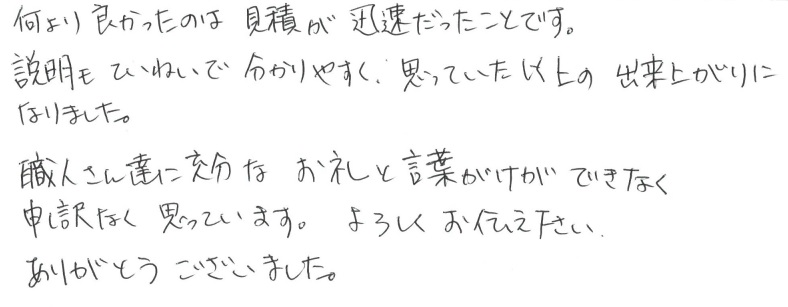 何より良かったのは 見積が 迅速だったことです。
説明も ていねいで 分かりやすく、思っていた以上の 出来上がりに
なりました。
職人さん達に充分な お礼と言葉がけが できなく
申訳なく 思っています。 よろしく お伝え下さい.
ありがとう ございました。